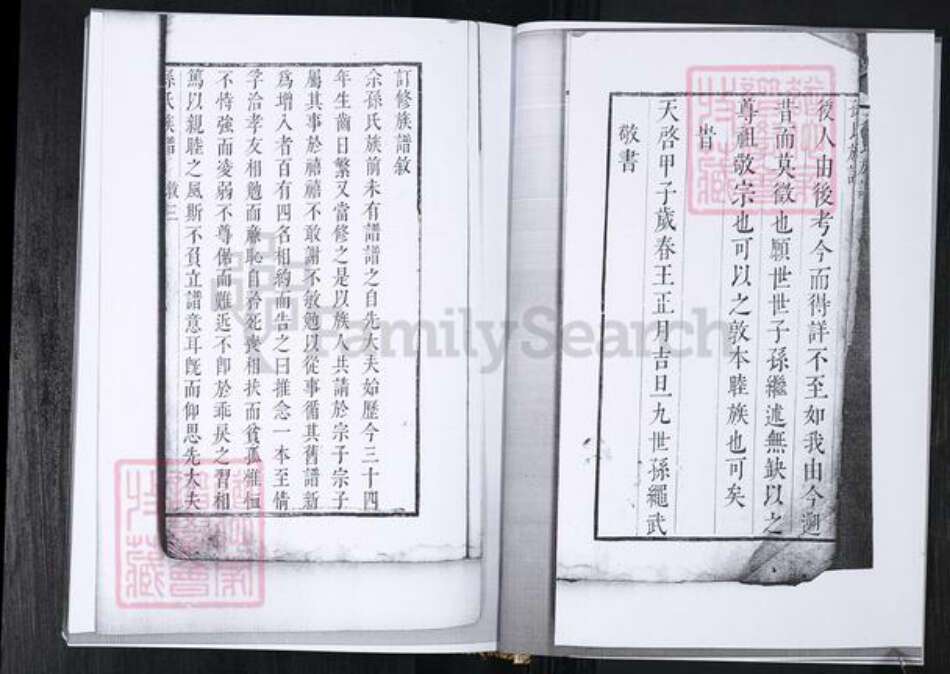 後人由後考今而得詳不至如我由今遡
昔而莫徵也願世世子孫繼述無缺以之
尊祖敬宗也可以之敦本睦族也可矣
旹
天啓甲子歲春王正月吉旦九世孫繩武
敬書
訂修族譜敘
余孫氏族前未有譜譜之自先大夫始歷今三十四
年生齒日繁又當修之是以族人共請於宗子宗子
屬其事於禧禧不敢謝不敏勉以從事循其舊譜新
爲增入者百有四名相約而告之曰推念一本至情
孚洽孝友相勉而廉恥自矜死喪相扶而貧孤惟恤
不恃強而凌弱不尊倨而難近不卽於乖戾之習相
篤以親睦之風斯不負立譜意耳旣而仰思先大夫
孫氏族譜 敘三
FamilySearch